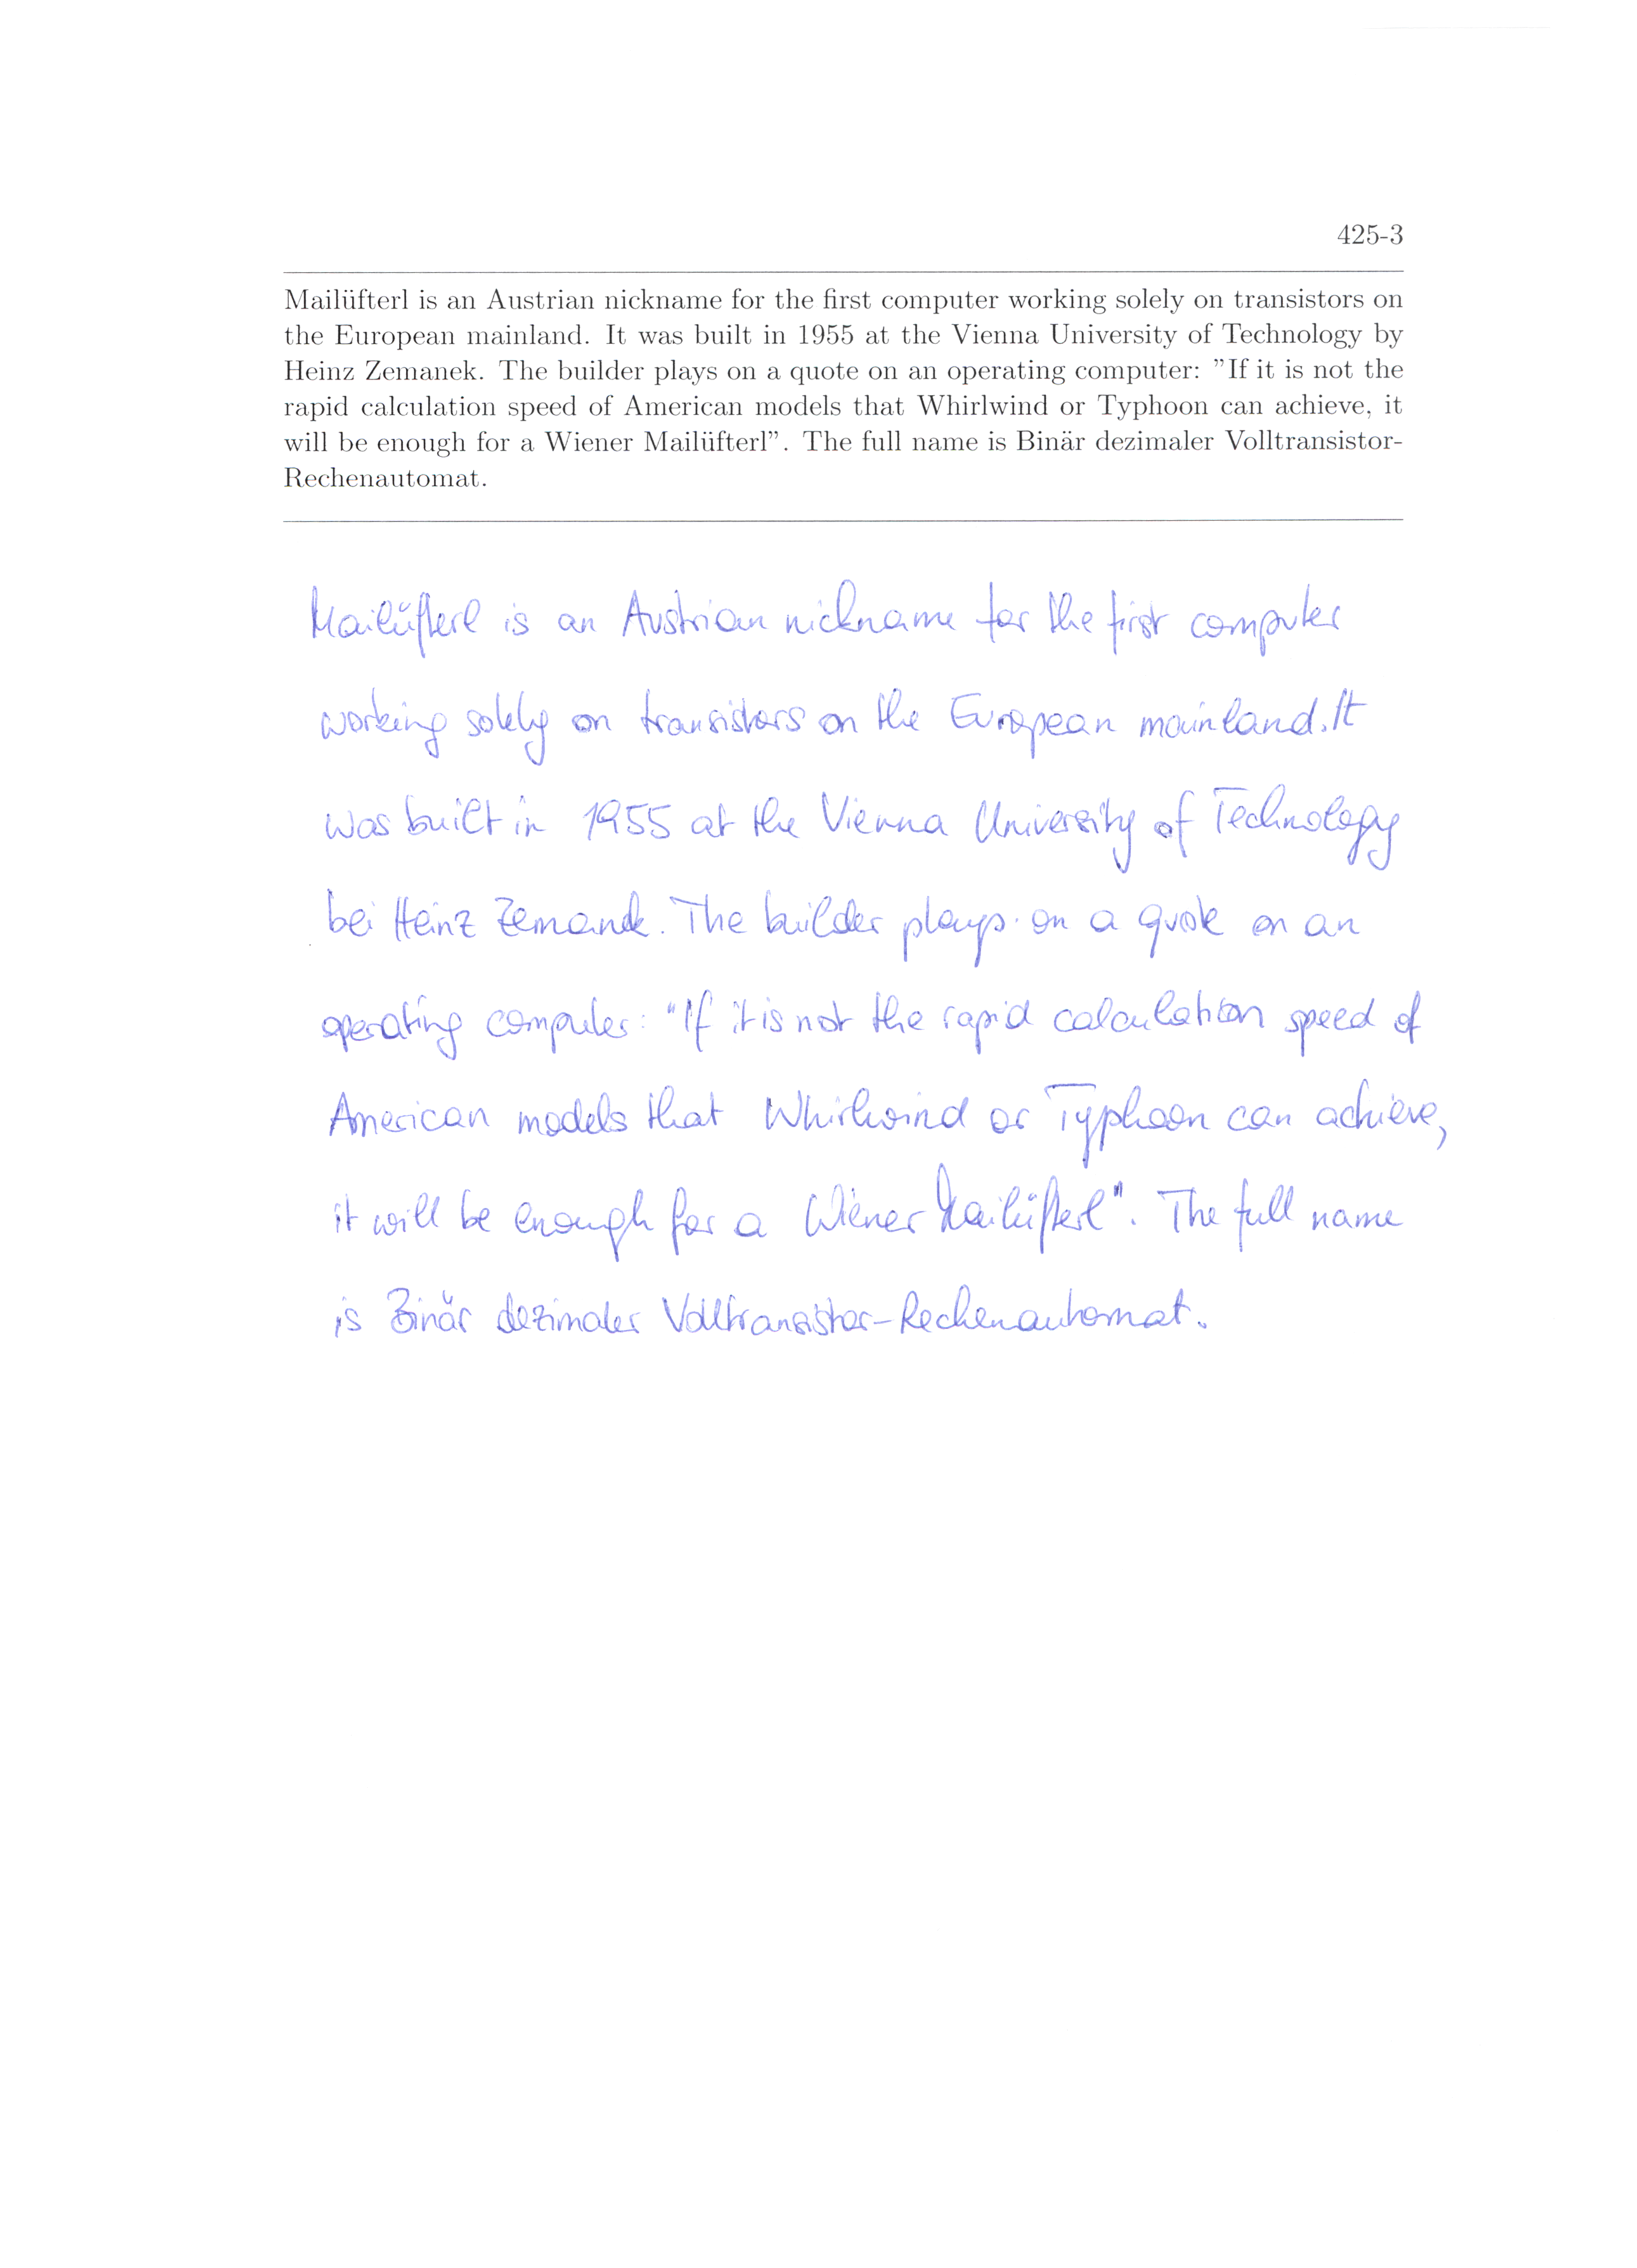 425-3
Mailüfterl is an Austrian nickname for the first computer working solely on transistors on
the European mainland. It was built in 1955 at the Vienna University of Technology by
Heinz Zemanek. The builder plays on a quote on an operating computer: ”If it is not the
rapid calculation speed of American models that Whirlwind or Typhoon can achieve, it
will be enough for a Wiener Mailüfterl”. The full name is Binär dezimaler Volltransistor-
Rechenautomat.
Mailüfterl is an Austrian nickname for the first computer
working solely on transistors on the European mainland. It
was built in 1955 at the Vienna University of Technology
bei Heinz Zemanek. The builder plays on a quote on an
operating computer: "If it is not the rapid calculation speed of
American models that Whirlwind or Typhoon can achieve,
it will be enough for a Wiener Mailüfterl". The full name
is Binär dezimaler Volltransistor-Rechenautomat.